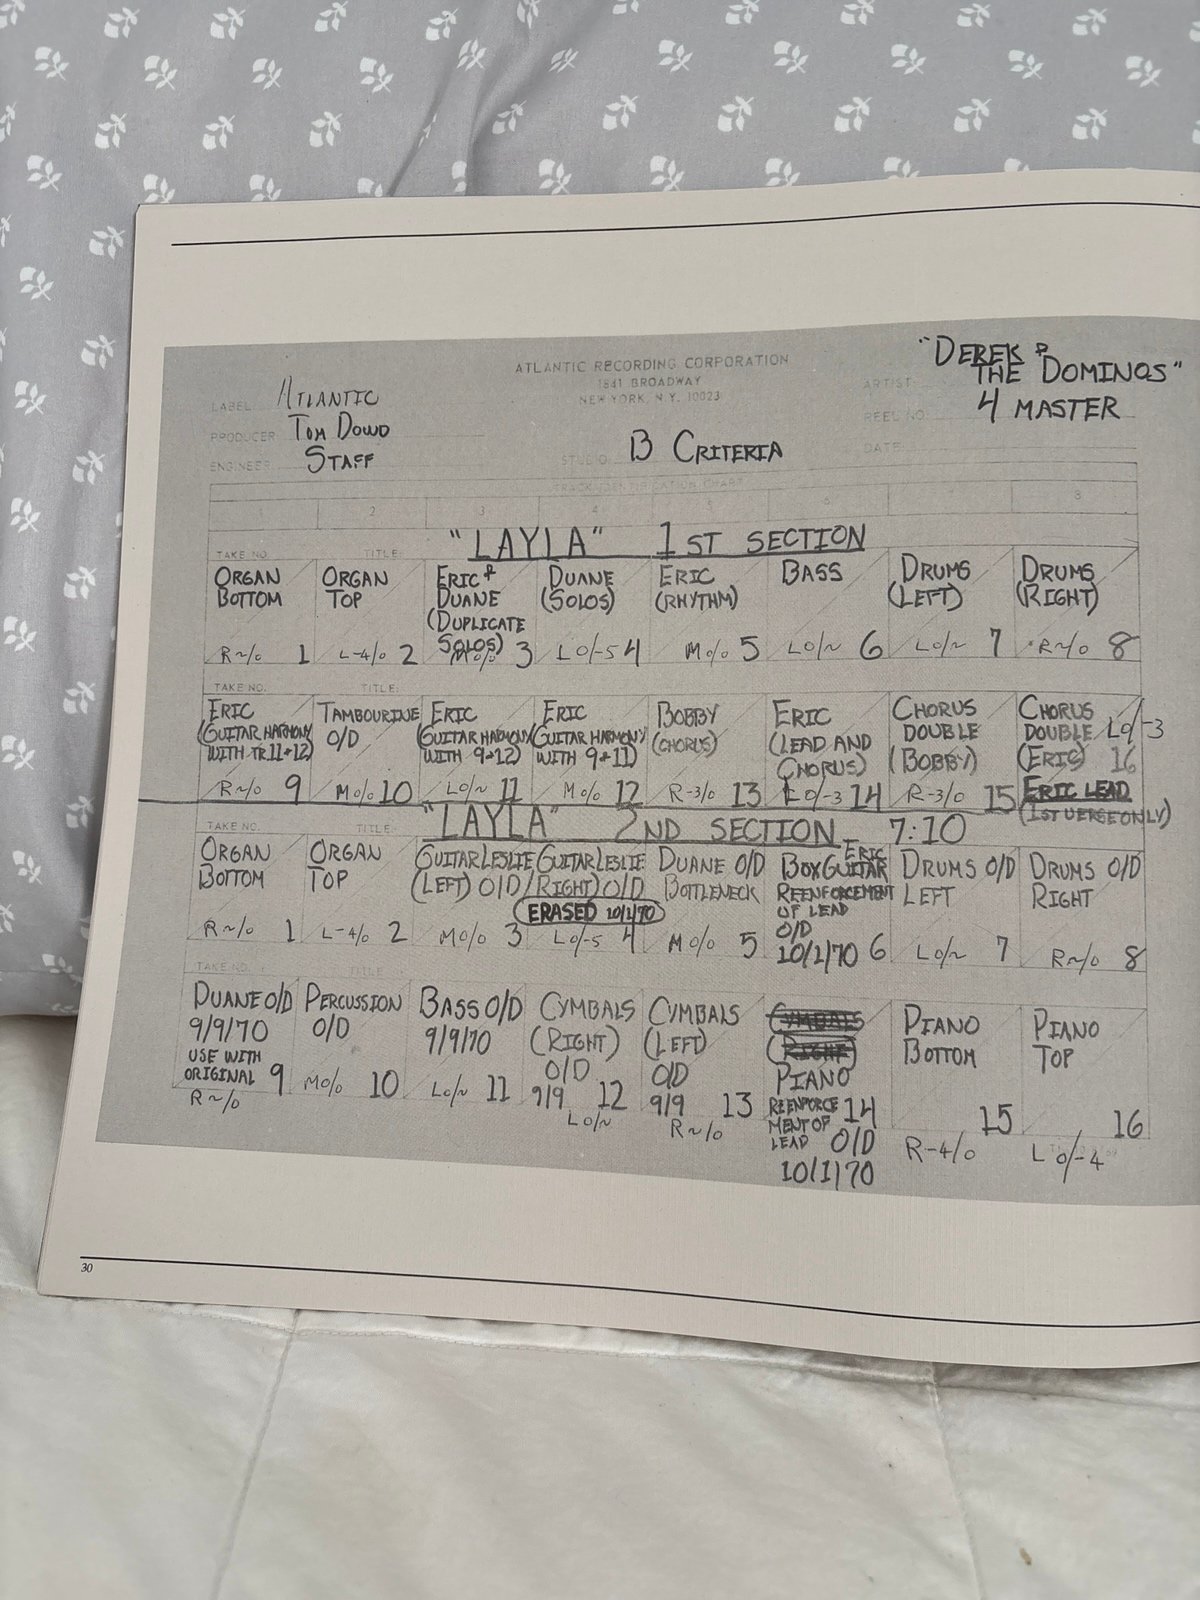 ATLANTIC RECORDING CORPORATION
1841 BROADWAY
NEW YORK, N.Y. 10023
LABEL: ATLANTIC
PRODUCER: TOM DOWD
ENGINEER: STAFF
STUDIO: B CRITERIA
ARTIST: "DEREK & THE DOMINOS"
REEL NO. 4 MASTER
DATE:
TRACK IDENTIFICATION CHART
1 2 3 4 5 6 7 8
"LAYLA" 1ST SECTION
TAKE NO. TITLE:
ORGAN BOTTOM R~/0 1
ORGAN TOP L-4/0 2
ERIC & DUANE (DUPLICATE SOLOS) M0/0 3
DUANE (SOLOS) L0/-5 4
ERIC (RHYTHM) M0/0 5
BASS L0/~ 6
DRUMS (LEFT) L0/~ 7
DRUMS (RIGHT) R~/0 8
TAKE NO. TITLE:
ERIC (GUITAR HARMONY WITH TR 11+12) R~/0 9
TAMBOURINE O/D M0/0 10
ERIC (GUITAR HARMONY WITH 9+12) L0/~ 11
ERIC (GUITAR HARMONY WITH 9+11) M0/0 12
BOBBY (CHORUS) R-3/0 13
ERIC (LEAD AND CHORUS) L0/-3 14
CHORUS DOUBLE (BOBBY) R-3/0 15
CHORUS DOUBLE (ERIC) L0/-3 16
ERIC LEAD (1ST VERSE ONLY)
"LAYLA" 2ND SECTION 7:10
TAKE NO. TITLE:
ORGAN BOTTOM R~/0 1
ORGAN TOP L-4/0 2
GUITAR LESLIE (LEFT) O/D M0/0 3
GUITAR LESLIE (RIGHT) O/D L0/-5 4
ERASED 10/1/70
DUANE O/D BOTTLENECK M0/0 5
ERIC BOX GUITAR REENFORCEMENT OF LEAD O/D 10/1/70 6
DRUMS O/D LEFT L0/~ 7
DRUMS O/D RIGHT R~/0 8
TAKE NO. TITLE:
DUANE O/D 9/9/70 USE WITH ORIGINAL 9 R~/0
PERCUSSION O/D M0/0 10
BASS O/D 9/9/70 L0/~ 11
CYMBALS (RIGHT) O/D 9/9 12 L0/~
CYMBALS (LEFT) O/D 9/9 13 R~/0
CYMBALS (RIGHT) PIANO REENFORCEMENT OF LEAD O/D 10/1/70 14
PIANO BOTTOM 15 R-4/0
PIANO TOP 16 L0/-4
30